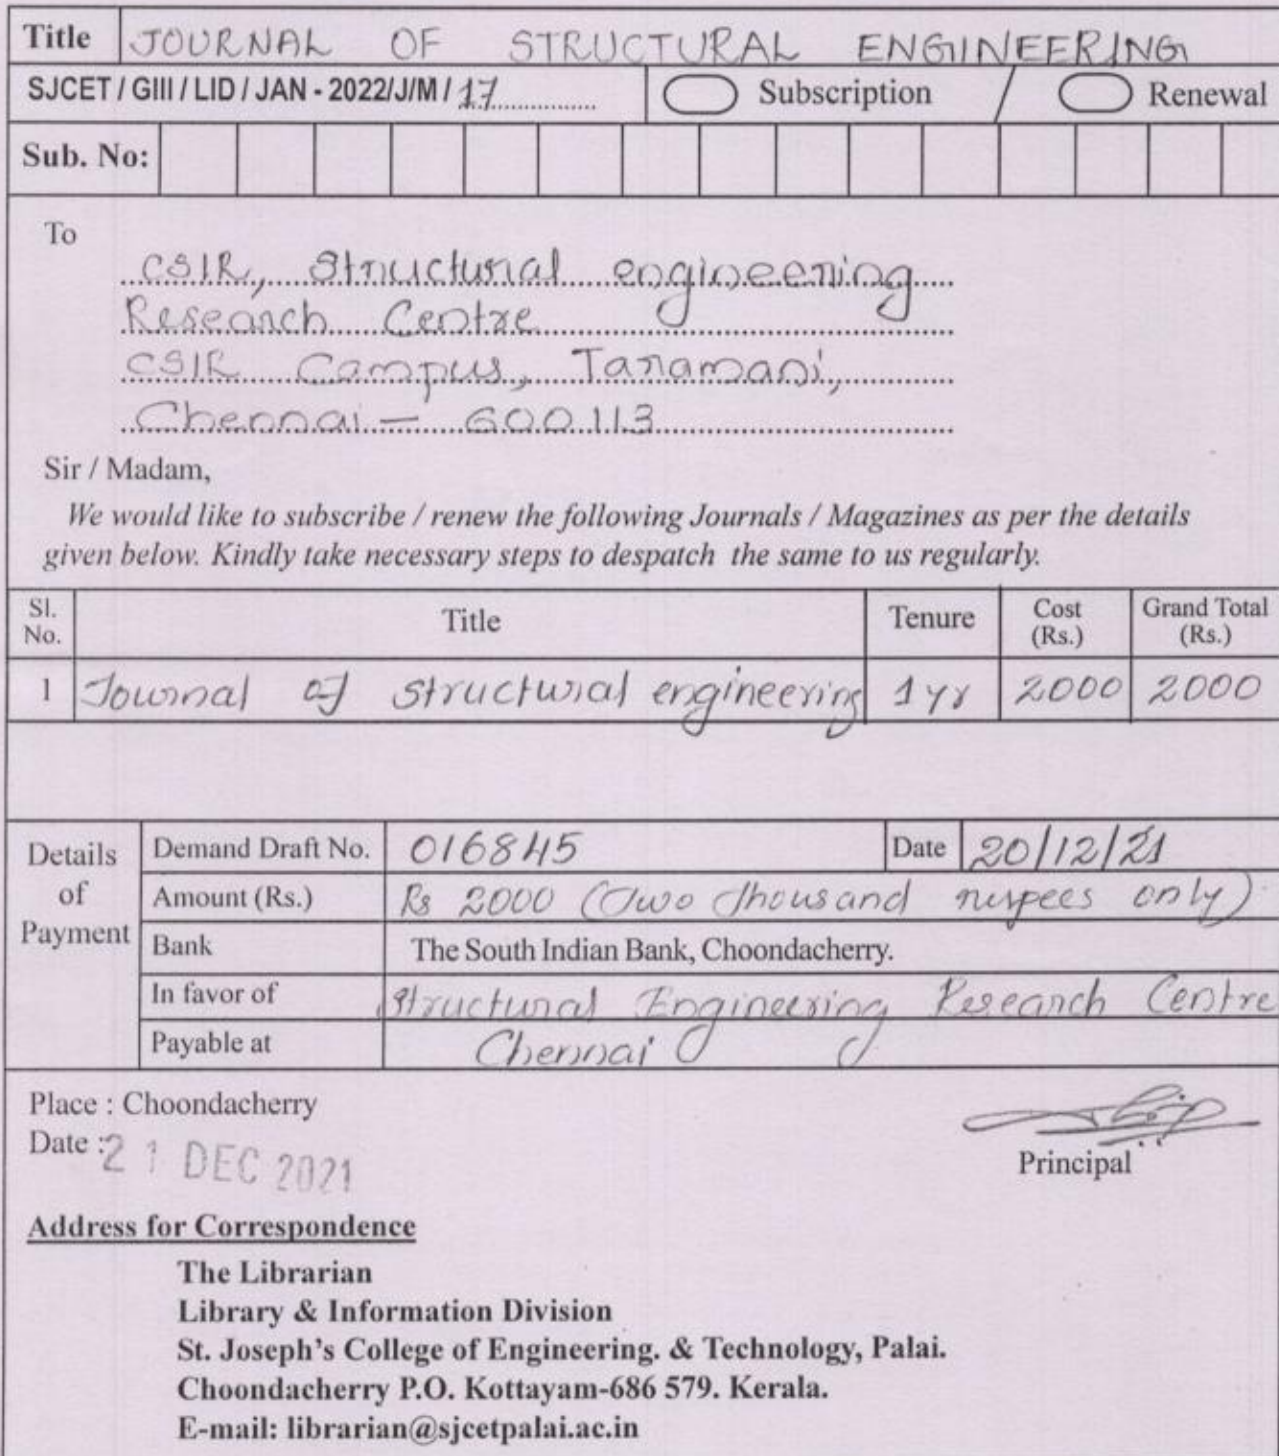 Title JOURNAL OF STRUCTURAL ENGINEERING
SJCET / GIII / LID / JAN - 2022/J/M / 17 Subscription / Renewal
Sub. No:
To
CSIR, Structural engineering
Research Centre
CSIR Campus, Taramani,
Chennai - 600113
Sir / Madam,
We would like to subscribe / renew the following Journals / Magazines as per the details
given below. Kindly take necessary steps to despatch the same to us regularly.
Sl. No. Title Tenure Cost (Rs.) Grand Total (Rs.)
1 Journal of structural engineering 1 yr 2000 2000
Details of Payment
Demand Draft No. 016845 Date 20/12/21
Amount (Rs.) Rs 2000 (Two thousand rupees only)
Bank The South Indian Bank, Choondacherry.
In favor of Structural Engineering Research Centre
Payable at Chennai
Place : Choondacherry
Date : 21 DEC 2021
Principal
Address for Correspondence
The Librarian
Library & Information Division
St. Joseph's College of Engineering. & Technology, Palai.
Choondacherry P.O. Kottayam-686 579. Kerala.
E-mail: librarian@sjcetpalai.ac.in